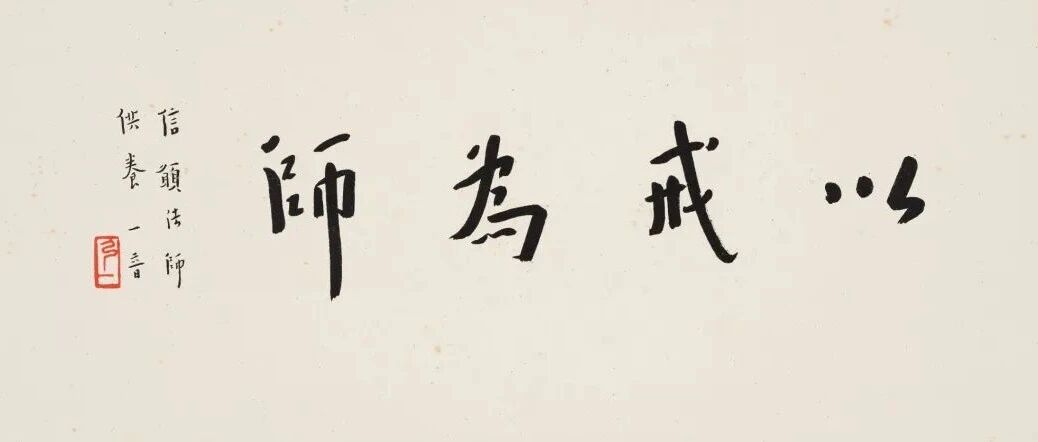 以戒為師
信願法師
供養 一音